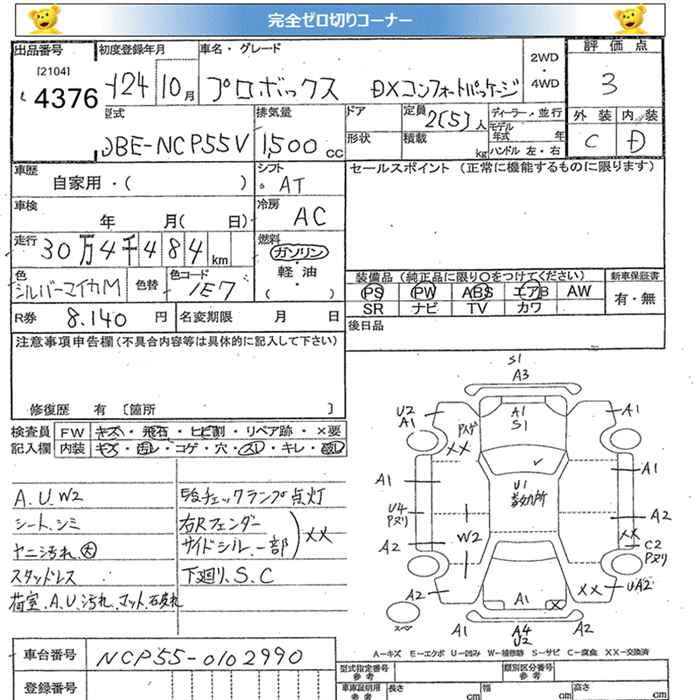 完全ゼロ切りコーナー
出品番号
[2104]
4376
初度登録年月
H24 10月
車名・グレード
プロボックス DXコンフォートパッケージ
2WD
・
4WD
評価点
3
外装 内装
C D
型式
DBE-NCP55V
排気量
1,500 cc
ドア
形状
定員
2(5)人
積載
kg
ディーラー・並行
モデル年式 年
ハンドル 左・右
車歴
自家用・( )
シフト
AT
セールスポイント (正常に機能するものに限ります)
車検
年 月( 日)
冷房
AC
走行
30万4千484km
燃料
ガソリン
軽油
( )
色
シルバーマイカM
色替
色コード
1E7
装備品 (純正品に限り○をつけてください)
PS PW ABS エアB AW
SR ナビ TV カワ
新車保証書
有・無
R券 8.140 円
名変期限 月 日
後日品
注意事項申告欄(不具合内容等は具体的に記入して下さい)
修復歴 有〔箇所 〕
検査員記入欄
FW キズ・飛石・ヒビ割・リペア跡・×要
内装 キズ・汚レ・コゲ・穴・スレ・キレ・破レ
A.U.W2
シート.シミ
ヤニ汚れ.大
スタッドレス
荷室.A.U.汚れ.マット.破れ
チェックランプ点灯
右Rフェンダー
サイドシル.一部
××
下廻り.S.C
S1
A3
U2
A1
××
A1
S1
A1
A1
A1
U1
多数箇所
U4
Pヌリ
A2
W2
A2
××
C2
Pヌリ
A2
A1
××
UA2
スペア
A1
A4
U2
A2
A-キズ E-エクボ U-凹み W-補修跡 S-サビ C-腐食 ××-交換済
車台番号
NCP55-0102990
登録番号
型式指定番号
参考
類別区分番号
参考
車庫証明用
参考
長さ cm
幅 cm
高さ cm